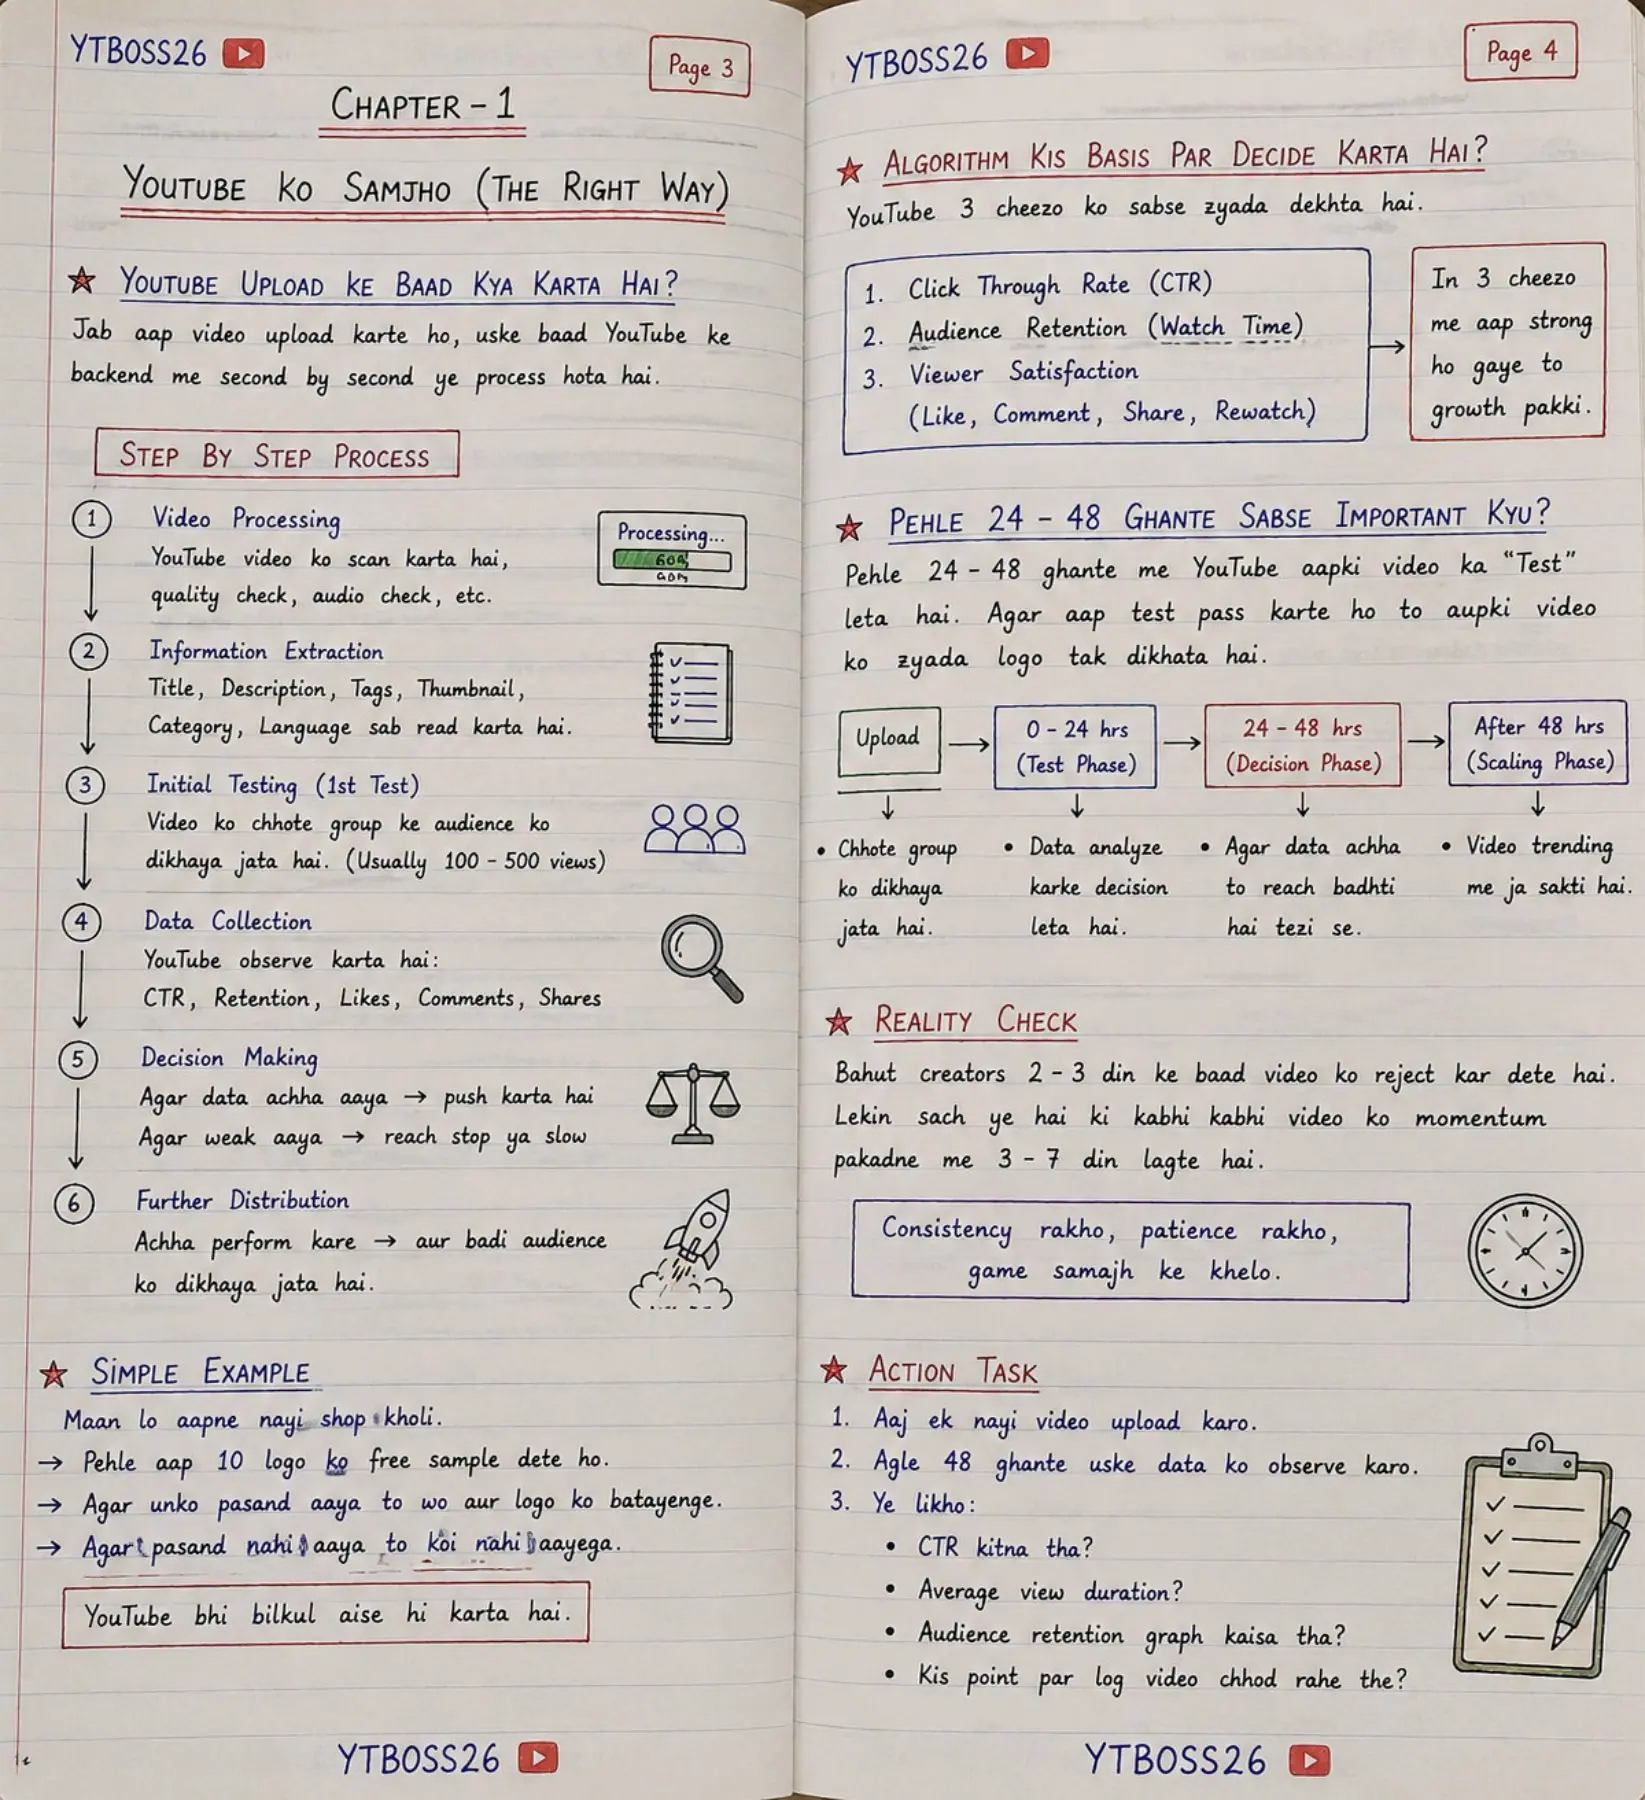 YTBOSS26
Page 3
CHAPTER - 1
YOUTUBE KO SAMJHO (THE RIGHT WAY)
YOUTUBE UPLOAD KE BAAD KYA KARTA HAI?
Jab aap video upload karte ho, uske baad YouTube ke
backend me second by second ye process hota hai.
STEP BY STEP PROCESS
1 Video Processing
YouTube video ko scan karta hai,
quality check, audio check, etc.
Processing...
2 Information Extraction
Title, Description, Tags, Thumbnail,
Category, Language sab read karta hai.
3 Initial Testing (1st Test)
Video ko chhote group ke audience ko
dikhaya jata hai. (Usually 100 - 500 views)
4 Data Collection
YouTube observe karta hai:
CTR, Retention, Likes, Comments, Shares
5 Decision Making
Agar data achha aaya → push karta hai
Agar weak aaya → reach stop ya slow
6 Further Distribution
Achha perform kare → aur badi audience
ko dikhaya jata hai.
SIMPLE EXAMPLE
Maan lo aapne nayi shop kholi.
→ Pehle aap 10 logo ko free sample dete ho.
→ Agar unko pasand aaya to wo aur logo ko batayenge.
→ Agar pasand nahi aaya to koi nahi aayega.
YouTube bhi bilkul aise hi karta hai.
YTBOSS26
YTBOSS26
Page 4
ALGORITHM KIS BASIS PAR DECIDE KARTA HAI?
YouTube 3 cheezo ko sabse zyada dekhta hai.
1. Click Through Rate (CTR)
2. Audience Retention (Watch Time)
3. Viewer Satisfaction
(Like, Comment, Share, Rewatch)
In 3 cheezo
me aap strong
ho gaye to
growth pakki.
PEHLE 24 - 48 GHANTE SABSE IMPORTANT KYU?
Pehle 24 - 48 ghante me YouTube aapki video ka "Test"
leta hai. Agar aap test pass karte ho to aupki video
ko zyada logo tak dikhata hai.
Upload
0 - 24 hrs
(Test Phase)
24 - 48 hrs
(Decision Phase)
After 48 hrs
(Scaling Phase)
• Chhote group
ko dikhaya
jata hai.
• Data analyze
karke decision
leta hai.
• Agar data achha
to reach badhti
hai tezi se.
• Video trending
me ja sakti hai.
REALITY CHECK
Bahut creators 2 - 3 din ke baad video ko reject kar dete hai.
Lekin sach ye hai ki kabhi kabhi video ko momentum
pakadne me 3 - 7 din lagte hai.
Consistency rakho, patience rakho,
game samajh ke khelo.
ACTION TASK
1. Aaj ek nayi video upload karo.
2. Agle 48 ghante uske data ko observe karo.
3. Ye likho:
• CTR kitna tha?
• Average view duration?
• Audience retention graph kaisa tha?
• Kis point par log video chhod rahe the?
YTBOSS26